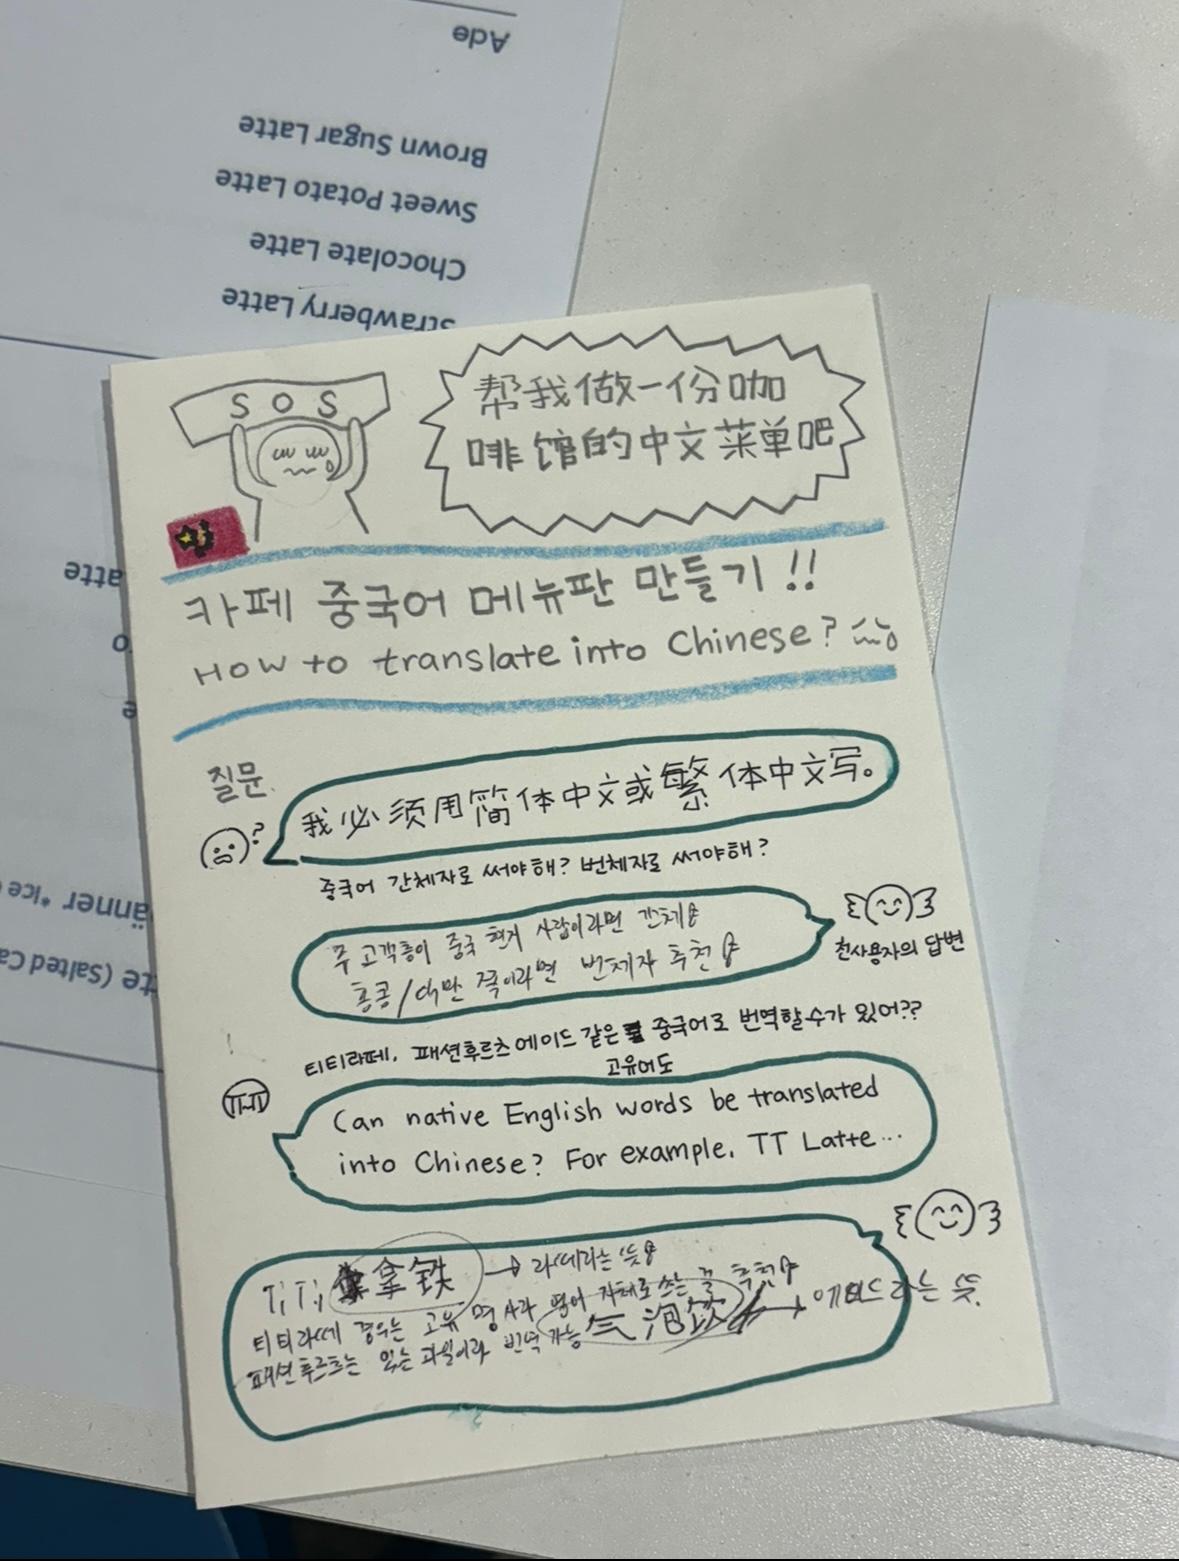 Ade
Brown Sugar Latte
Sweet Potato Latte
Chocolate Latte
Strawberry Latte
atte
o
e
änner *Ice
tte (Salted Ca
SOS
帮我做一份咖
啡馆的中文菜单吧
카페 중국어 메뉴판 만들기!!
HOW to translate into Chinese?
질문.
?
我必须用简体中文或繁体中文写。
중국어 간체자로 써야해? 번체자로 써야해?
주 고객층이 중국 현지 사람이라면 간체
홍콩/대만 쪽이라면 번체자 추천
천사용자의 답변
티티라떼, 패션후르츠에이드 같은 중국어로 번역할수가 있어??
고유어도
Can native English words be translated
into Chinese? For example, TT Latte...
TiTi 拿铁 → 라떼라는 뜻
티티라떼 경우는 고유 명사라 영어 자체로 쓰는 걸 추천
패션후르츠는 있는 과일이라 번역 가능 气泡饮 → 에이드라는 뜻.